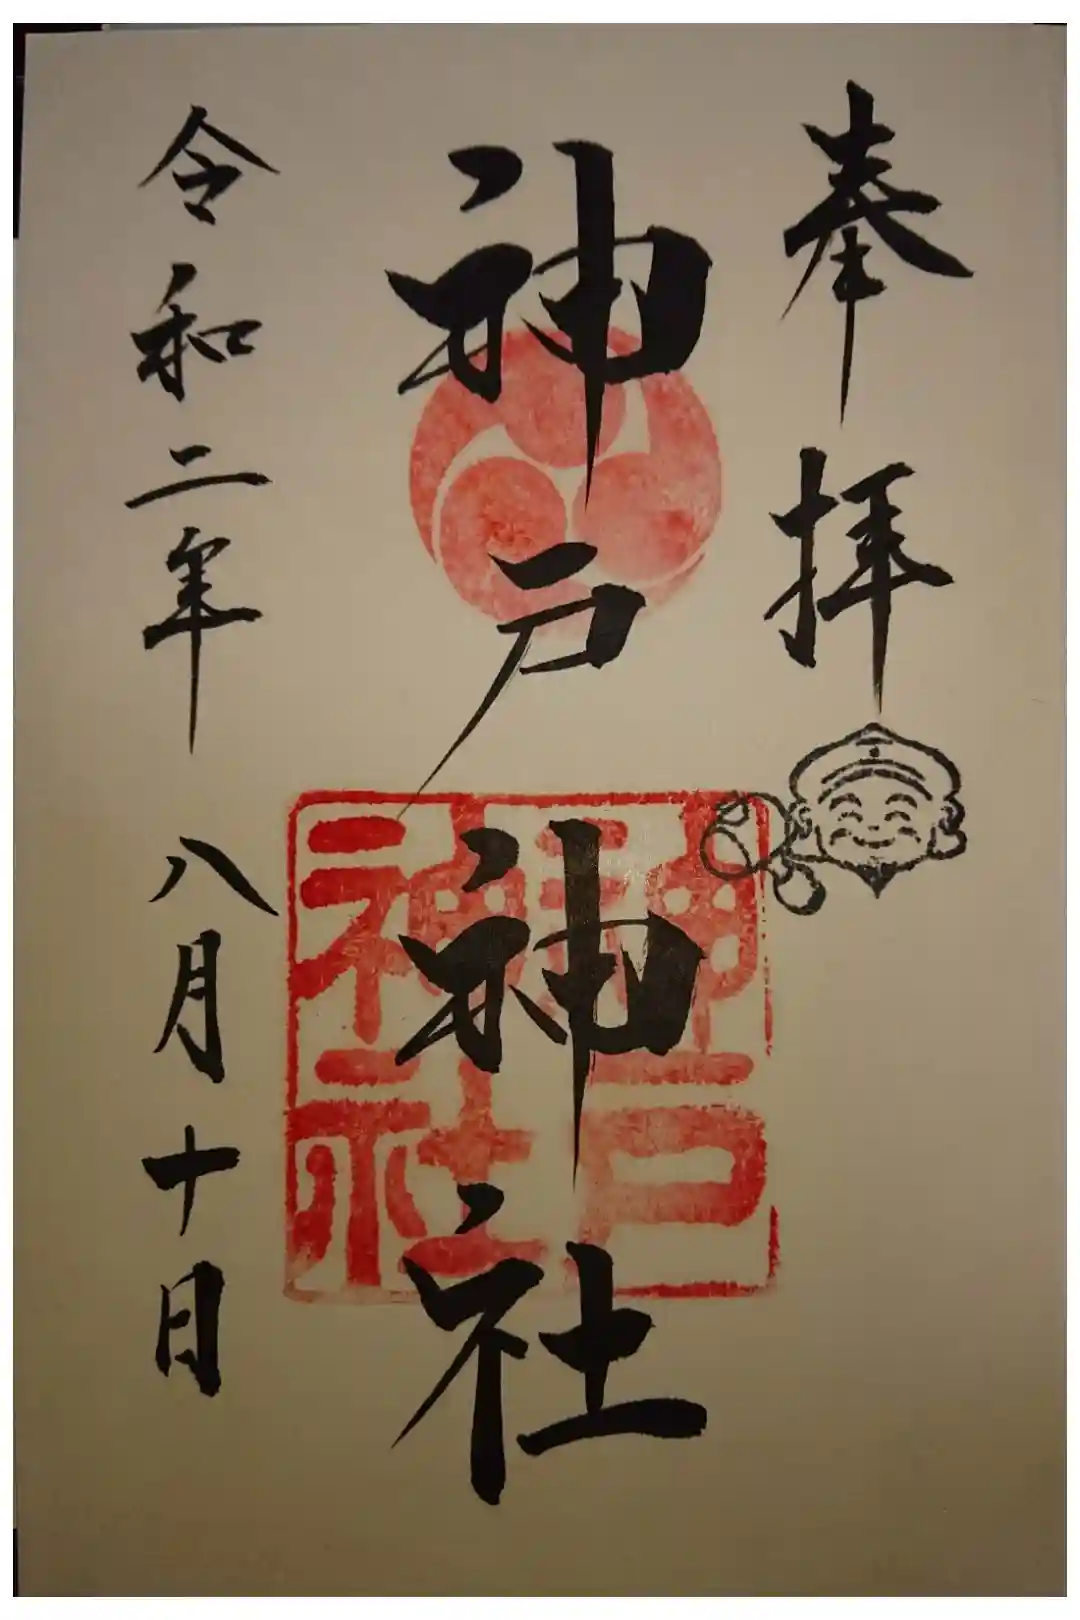 奉拝
神戸神社
神戸
神社
令和二年八月十日